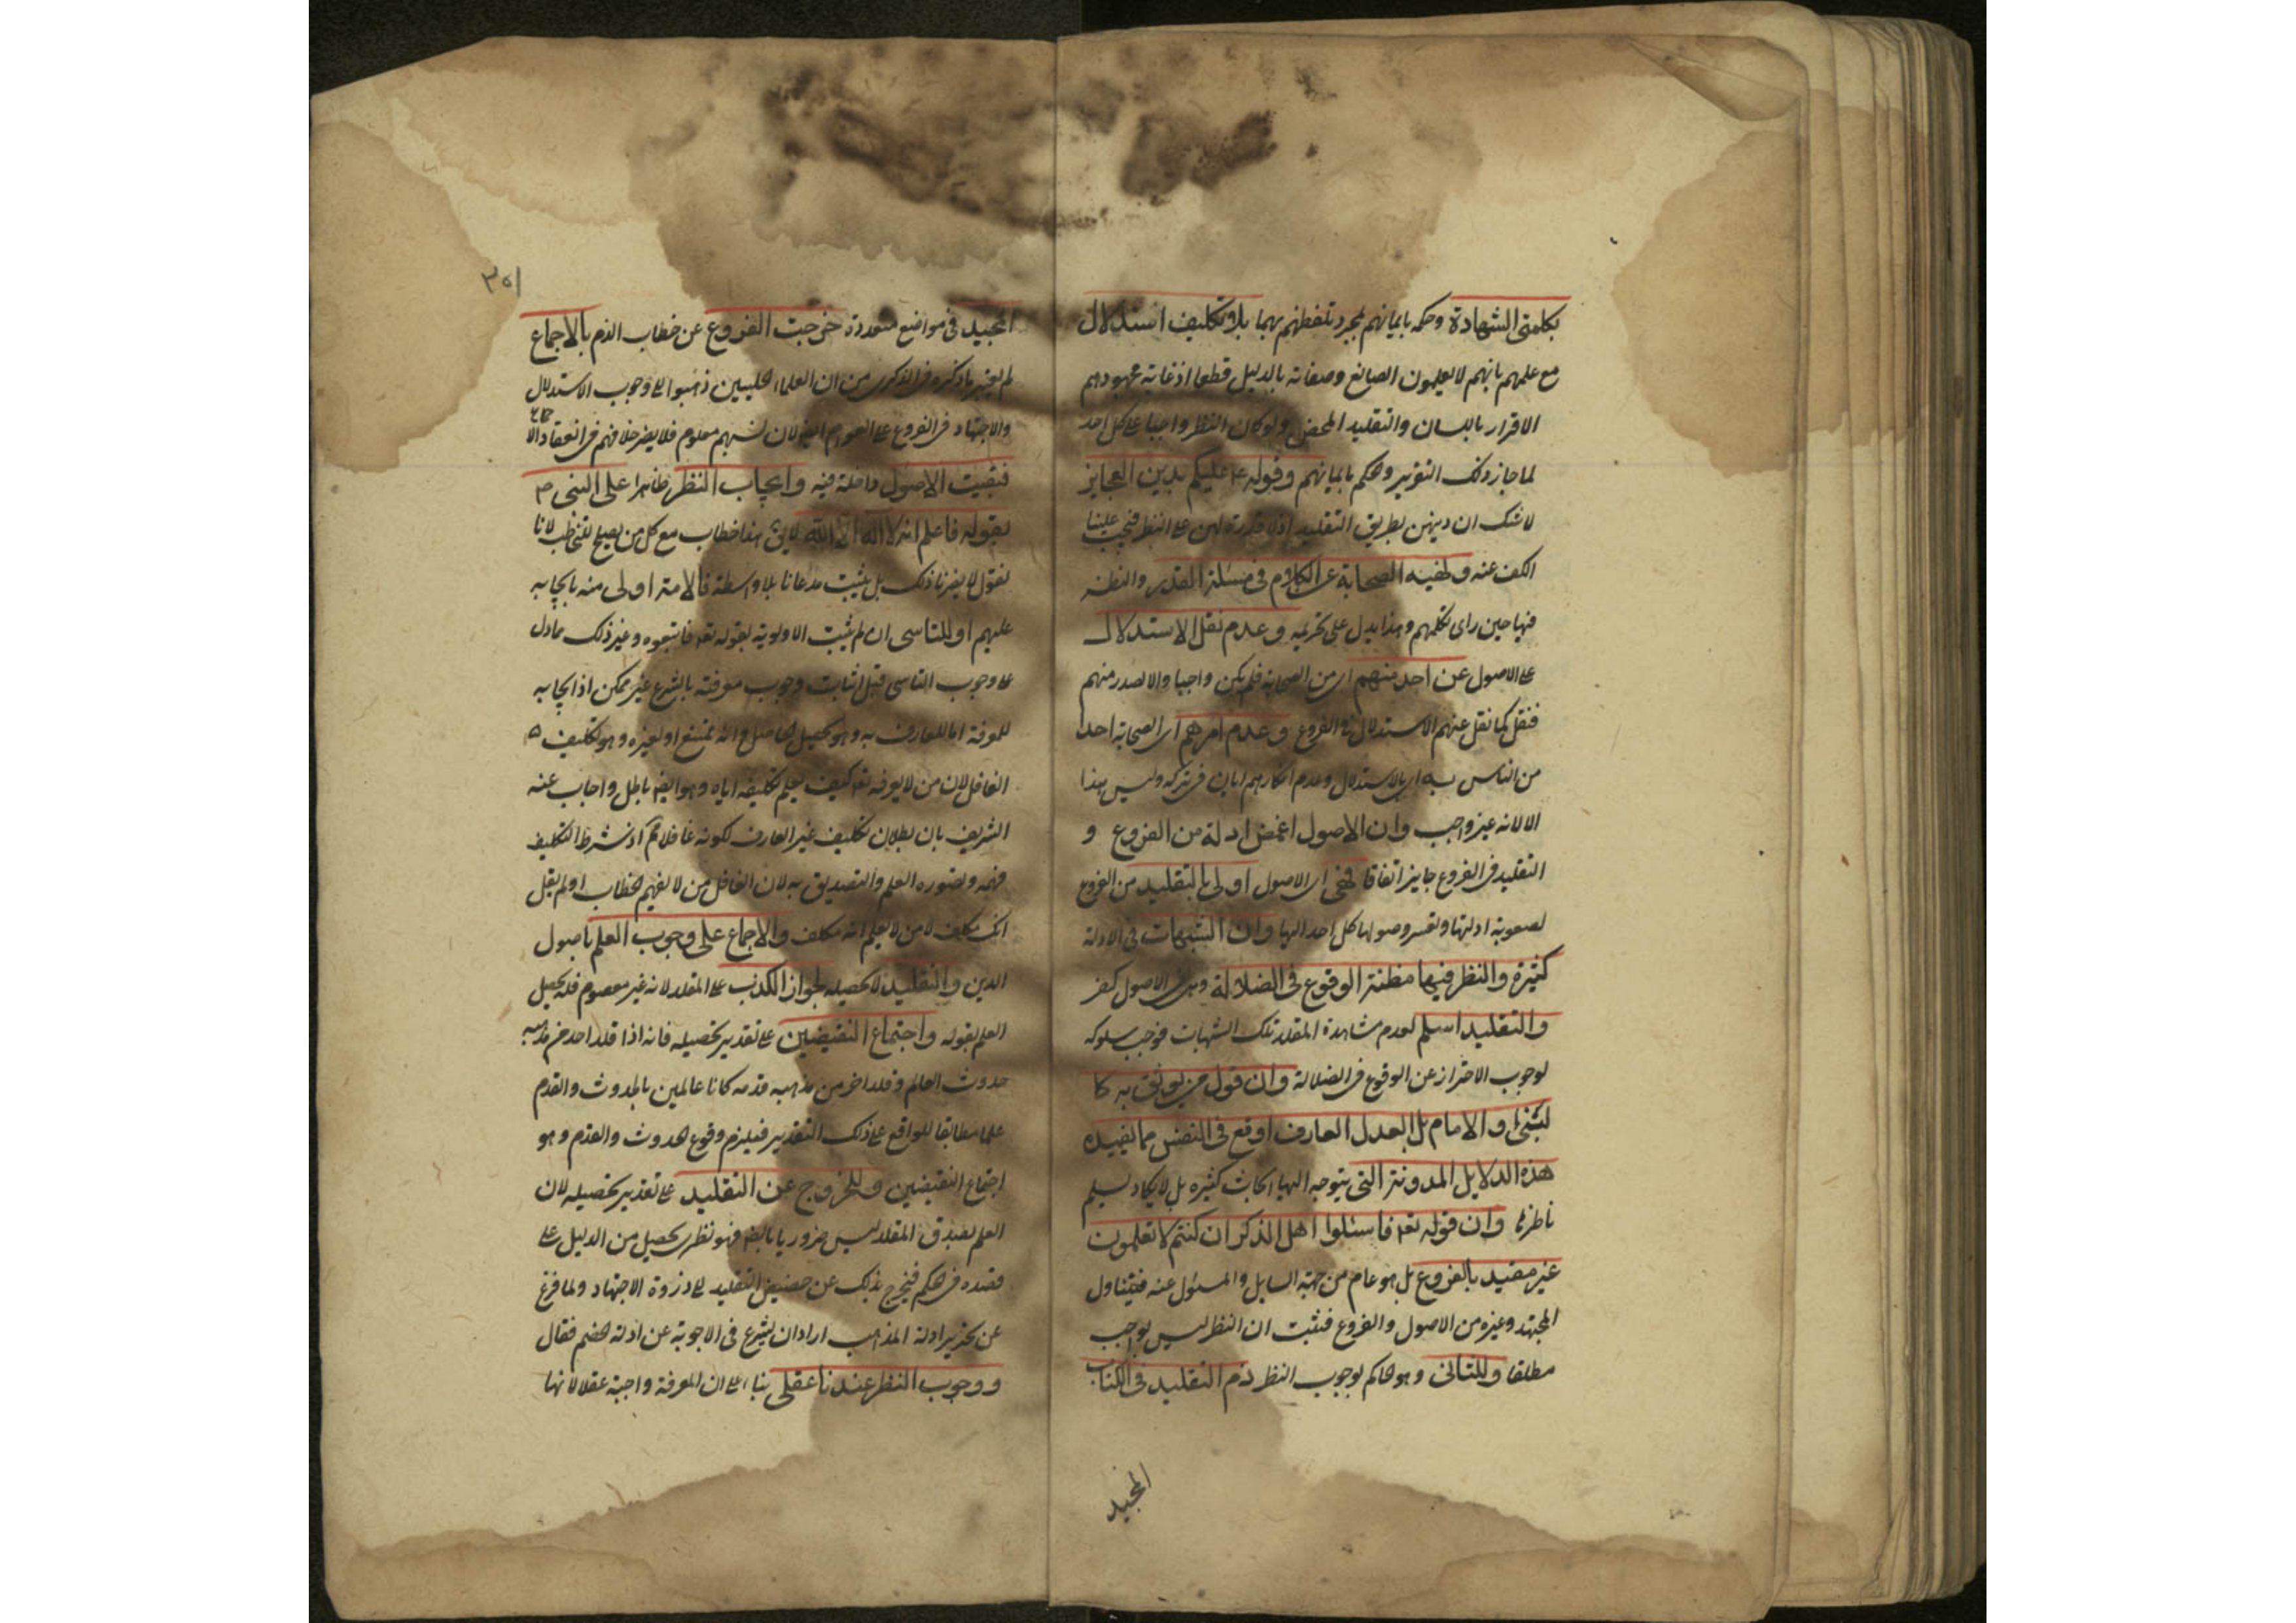 بكلمتى الشهادة وحكمه بايمانهم بمجرد تلفظهم بهما بلا تكليف استدلال
مع علمهم بانهم لا يعلمون الصانع وصفاته بالدليل قطعا اذ غاية مجهودهم
الاقرار باللسان والتقليد المحض ولو كان النظر واجبا على كل احد
لما جاز ذلك التقرير والحكم بايمانهم وقوله ع عليكم بدين العجايز
لا شك ان دينهن بطريق التقليد اذ لا قدرة لهن على النظر فيجب علينا
الكف عنه ونهيه الصحابة عن الكلام فى مسئلة القدر والنظر
فيها حين راى تكلمهم وهذا يدل على تحريمه وعدم نقل الاستدلال
على الاصول عن احد منهم اى من الصحابة فلم يكن واجبا والا لصدر منهم
فنقل كما نقل عنهم الاستدلال فى الفروع وعدم امرهم اى الصحابة احدا
من الناس به اى بالاستدلال وعدم انكارهم اياه فى تركه وليس هذا
الا لانه غير واجب وان الاصول اغمض ادلة من الفروع و
التقليد فى الفروع جايز اتفاقا فهى اى الاصول اولى بالتقليد من الفروع
لصعوبة ادلتها وتعسر وصول كل احد اليها وان الشبهات فى الادلة
كثيرة والنظر فيها مظنة الوقوع فى الضلالة وهى فى الاصول كفر
والتقليد اسلم لعدم مشاهدة المقلد تلك الشبهات فوجب سلوكه
لوجوب الاحتراز عن الوقوع فى الضلالة وان قول من يوثق به كا
لنبى والامام بل العدل العارف اوقع فى النفس مما يفيده
هذه الدلايل المدونة التى يتوجه اليها ابحاث كثيره بل لا يكاد يسلم
ناظرها وان قوله تعا فاسئلوا اهل الذكر ان كنتم لا تعلمون
غير مقيد بالفروع بل هو عام من جهة السايل والمسئول عنه فيتناول
المجتهد وغيره من الاصول والفروع فثبت ان النظر ليس بواجب
مطلقا وللثانى وهو الحاكم بوجوب النظر ذم التقليد فى الكتاب
المجيد
٣٥١
المجيد فى مواضع متعددة خرجت الفروع عن خطاب الذم بالاجماع
لم يعتبر ما ذكره فى الذكرى من ان العلماء الحلبيين ذهبوا الى وجوب الاستدلال
والاجتهاد فى الفروع على العوام ايضا لان نسبهم معلوم فلا يضر خلافهم فى انعقاد الاجماع
فبقيت الاصول داخلة فيه وايجاب النظر ظاهرا على النبى ص
بقوله فاعلم انه لا اله الا الله لا يق هذا خطاب مع كل من يصلح للتخاطب لانا
نقول لا يضرنا ذلك بل يثبت مدعانا بلا واسطة فالامة اولى منه بايجابه
عليهم او للتاسى ان لم يثبت الاولوية بقوله تعا فاتبعوه وغير ذلك مما دل
على وجوب التاسى قيل اثبات وجوب معرفته بالشرع غير ممكن اذ ايجابه
للمعرفة اما للعارف به وهو تحصيل الحاصل وانه ممتنع او لغيره وهو تكليف
الغافل لان من لا يعرفه تعا كيف يعلم تكليفه اياه وهو ايضا باطل واجاب عنه
الشريف بان بطلان تكليف غير العارف لكونه غافلا مم اذ شرط التكليف
فهمه وتصوره لا العلم والتصديق به لان الغافل من لا يفهم الخطاب او لم يقل
انك مكلف لا من لا يعلم انه مكلف والاجماع على وجوب العلم باصول
الدين والتقليد لا يحصله لجواز الكذب على المقلد لانه غير معصوم فلا يحصل
العلم بقوله واجتماع النقيضين على تقدير تحصيله فانه اذا قلد احد من مذهبه
حدوث العالم وقلد اخر من مذهبه قدمه كانا عالمين بالحدوث والقدم
علما مطابقا للواقع على ذلك التقدير فيلزم وقوع الحدوث والقدم وهو
اجتماع النقيضين وللخروج عن التقليد على تقدير تحصيله لان
العلم بصدق المقلد ليس ضروريا بالبض فهو نظرى يحصل من الدليل على
صدقه فى الحكم فيخرج بذلك عن حضيض التقليد الى ذروة الاجتهاد ولما فرغ
عن تحرير ادلة المذاهب اراد ان يشرع فى الاجوبة عن ادلة الخصم فقال
ووجوب النظر عندنا عقلى بناء على ان المعرفة واجبة عقلا لانها